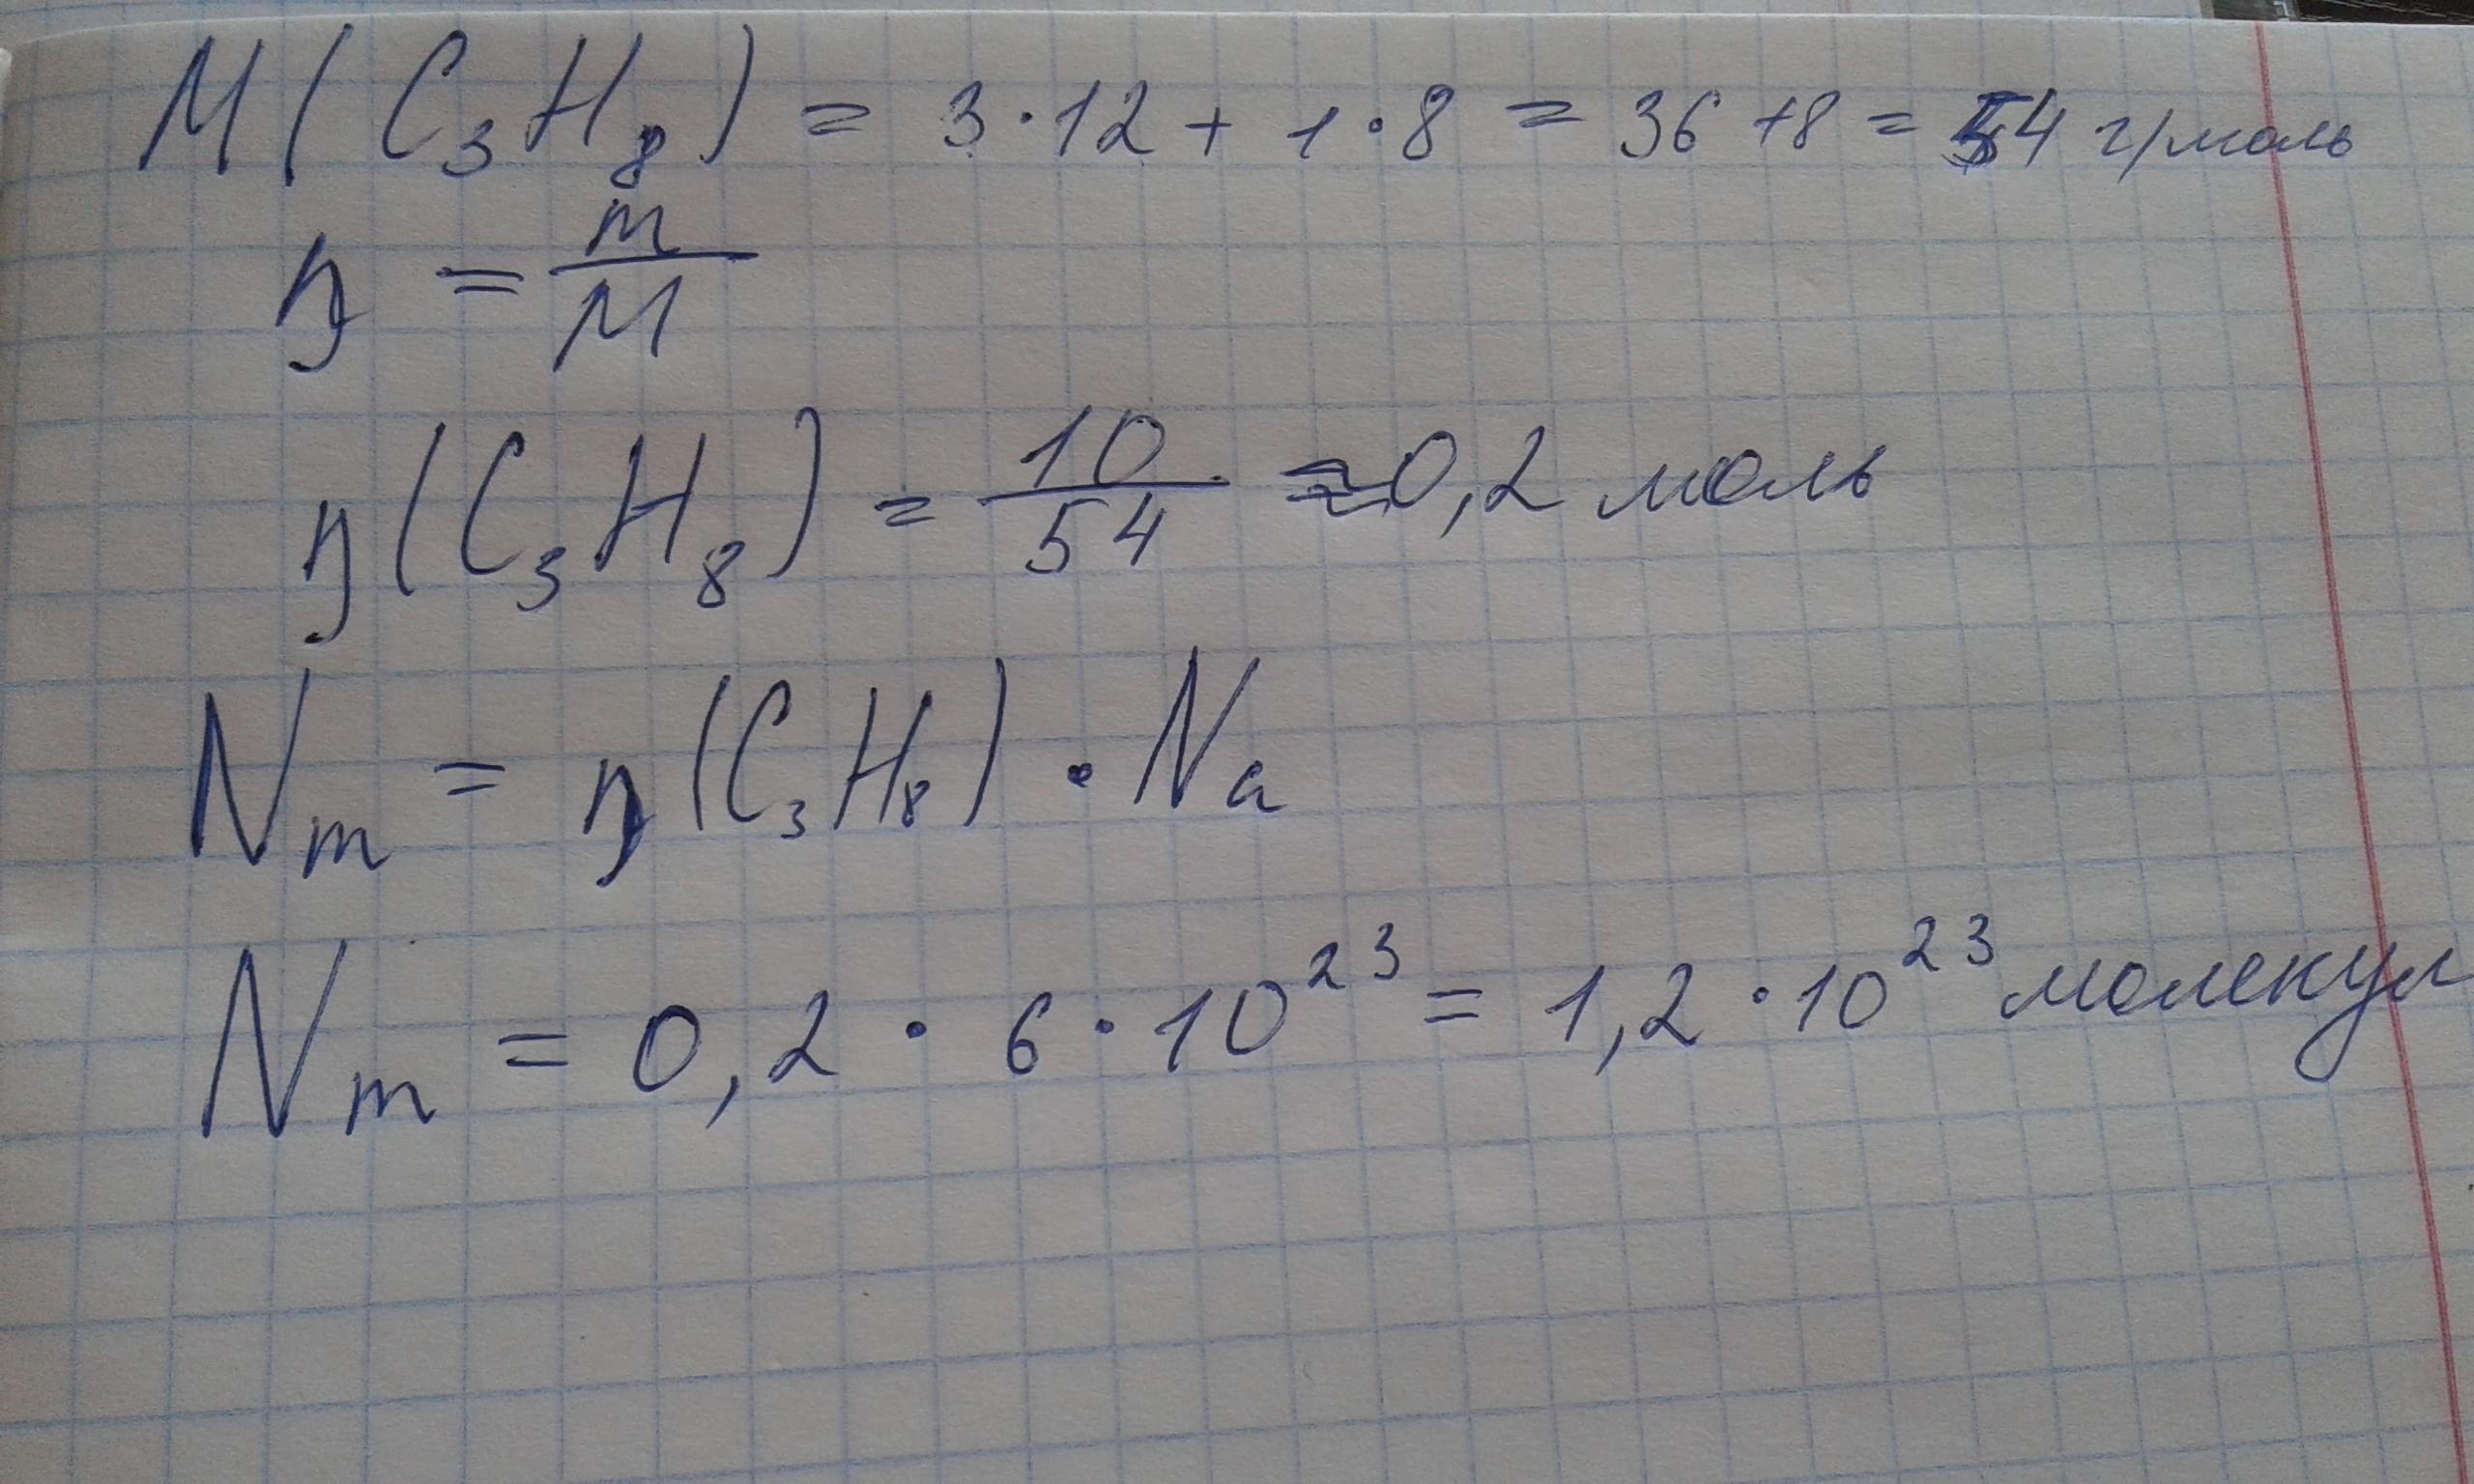 M(C₃H₈) = 3·12 + 1·8 = 36 + 8 = 54 г/моль
η = m/M
η(C₃H₈) = 10/54 ≈ 0,2 моль
Nm = η(C₃H₈)·Na
Nm = 0,2·6·10²³ = 1,2·10²³ молекул